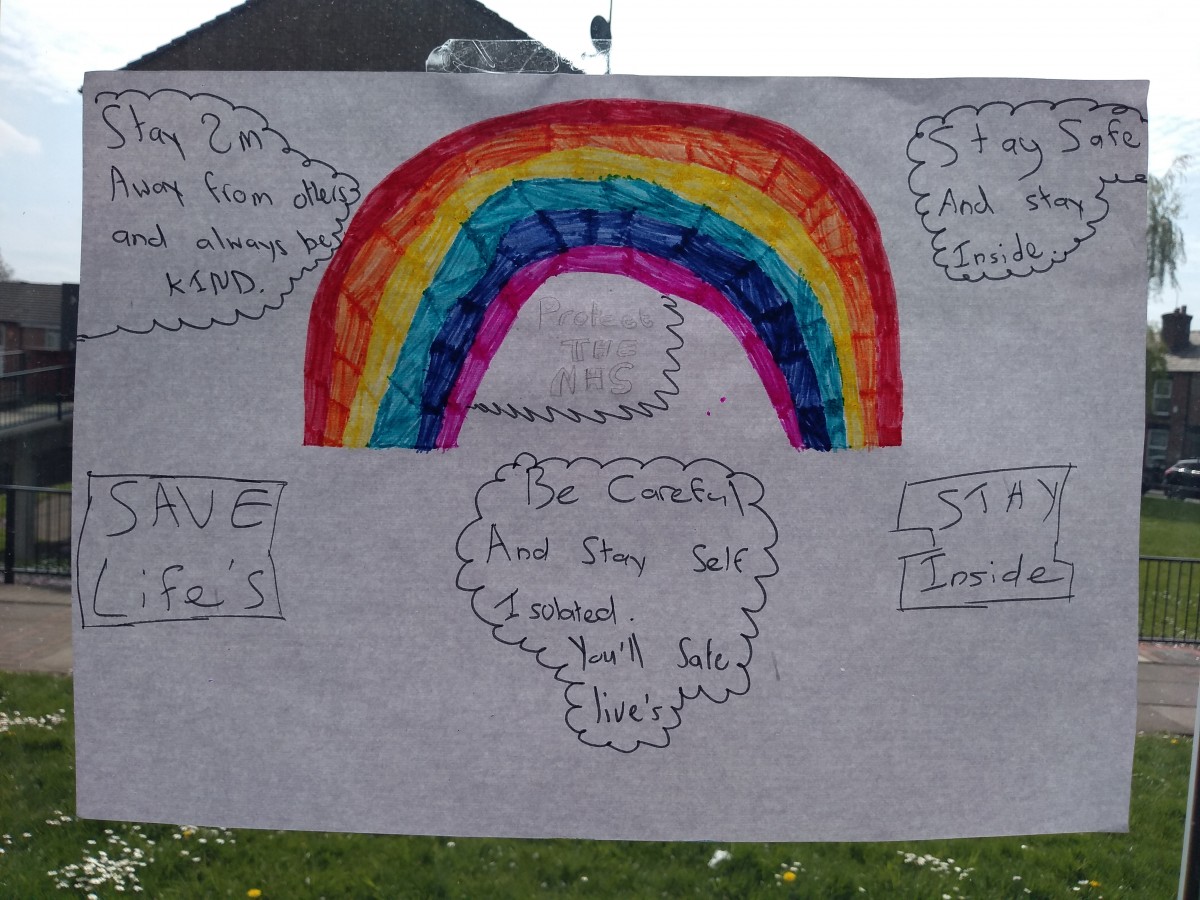 Stay 2m
Away from others
and always be
KIND.
Stay Safe
And stay
Inside.
Protect
THE
NHS
SAVE
Life's
Be Careful
And Stay Self
Isolated.
You'll Safe
live's
STAY
Inside